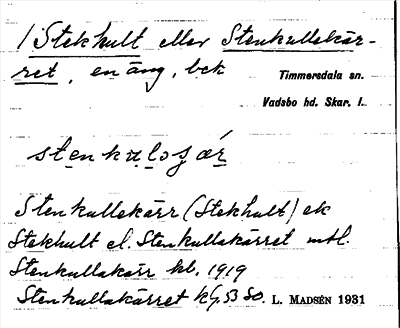 1 Stekhult eller Stenkullekär-
ret, en äng, bek
Timmersdala sn.
Vadsbo hd. Skar. l.
stenkulosǯær
Stenkullekärr (Stekhult) ek
Stekhult el. Stenkullakärret mtl.
Stenkullakärr kb. 1919
Stenkullakärret hfg. 53 So. L. MADSÉN 1931